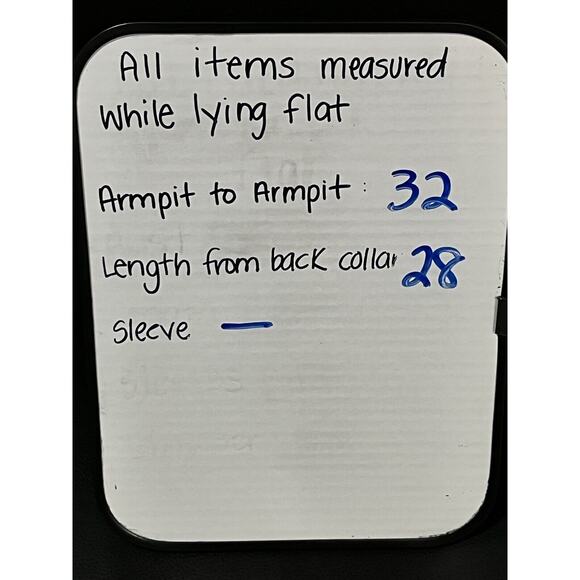 All items measured
while lying flat
Armpit to Armpit : 32
Length from back collar 28
Sleeve —